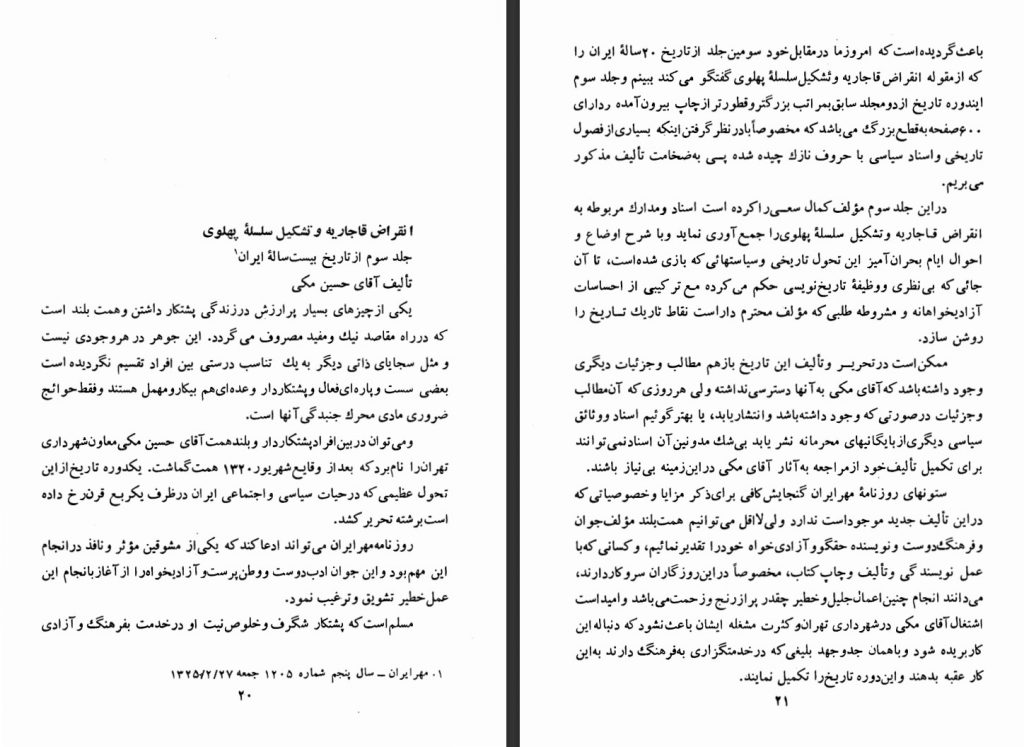 انقراض قاجاریه و تشکیل سلسلهٔ پهلوی
جلد سوم از تاریخ بیست سالهٔ ایران۱
تألیف آقای حسین مکی
یکی از چیزهای بسیار پرارزش در زندگی پشتکار داشتن و همت بلند است
که در راه مقاصد نیک و مفید مصروف می گردد. این جوهر در هر وجودی نیست
و مثل سجایای ذاتی دیگر به یک تناسب درستی بین افراد تقسیم نگردیده است
بعضی سست و پاره ای فعال و پشتکار دار و عده ای هم بیکار و مهمل هستند و فقط حوائج
ضروری مادی محرک جنبدگی آنها است.
و می توان در بین افراد پشتکار دار و بلند همت آقای حسین مکی معاون شهرداری
تهران را نام برد که بعد از وقایع شهریور ۱۳۲۰ همت گماشت. یکدوره تاریخ از این
تحول عظیمی که در حیات سیاسی و اجتماعی ایران در ظرف یکربع قرن رخ داده
است برشته تحریر کشد.
روزنامه مهر ایران می تواند ادعا کند که یکی از مشوقین مؤثر و نافذ در انجام
این مهم بود و این جوان ادب دوست و وطن پرست و آزادیخواه را از آغاز با انجام این
عمل خطیر تشویق و ترغیب نمود.
مسلم است که پشتکار شگرف و خلوص نیت او در خدمت بفرهنگ و آزادی
۱. مهر ایران ــ سال پنجم شماره ۱۲۰۵ جمعه ۱۳۲۵/۲/۲۷
۲۰
باعث گردیده است که امروز ما در مقابل خود سومین جلد از تاریخ ۲۰ سالهٔ ایران را
که از مقوله انقراض قاجاریه و تشکیل سلسلهٔ پهلوی گفتگو می کند ببینم و جلد سوم
ایندوره تاریخ از دو مجلد سابق بمراتب بزرگتر و قطورتر از چاپ بیرون آمده ردارای
۶۰۰ صفحه به قطع بزرگ می باشد که مخصوصاً با در نظر گرفتن اینکه بسیاری از فصول
تاریخی و اسناد سیاسی با حروف نازک چیده شده پسی به ضخامت تألیف مذکور
می بریم.
در این جلد سوم مؤلف کمال سعی را کرده است اسناد و مدارک مربوطه به
انقراض قاجاریه و تشکیل سلسلهٔ پهلوی را جمع آوری نماید و با شرح اوضاع و
احوال ایام بحران آمیز این تحول تاریخی و سیاستهائی که بازی شده است، تا آن
جائی که بی نظری و وظیفهٔ تاریخ نویسی حکم می کرده مع ترکیبی از احساسات
آزادیخواهانه و مشروطه طلبی که مؤلف محترم داراست نقاط تاریک تاریخ را
روشن سازد.
ممکن است در تحریر و تألیف این تاریخ باز هم مطالب و جزئیات دیگری
وجود داشته باشد که آقای مکی به آنها دسترسی نداشته ولی هر روزی که آن مطالب
و جزئیات در صورتی که وجود داشته باشد و انتشار یابد، یا بهتر گوئیم اسناد و وثائق
سیاسی دیگری از بایگانیهای محرمانه نشر یابد بی شک مدونین آن اسناد نمی توانند
برای تکمیل تألیف خود از مراجعه به آثار آقای مکی در این زمینه بی نیاز باشند.
ستونهای روزنامهٔ مهر ایران گنجایش کافی برای ذکر مزایا و خصوصیاتی که
در این تألیف جدید موجود است ندارد ولی لااقل می توانیم همت بلند مؤلف جوان
و فرهنگ دوست و نویسنده حقگو و آزادی خواه خود را تقدیر نمائیم، و کسانی که با
عمل نویسندگی و تألیف و چاپ کتاب، مخصوصاً در این روزگاران سر و کار دارند،
می دانند انجام چنین اعمال جلیل و خطیر چقدر پر از رنج و زحمت می باشد و امید است
اشتغال آقای مکی در شهرداری تهران و کثرت مشغله ایشان باعث نشود که دنباله این
کار بریده شود و با همان جد و جهد بلیغی که در خدمتگزاری به فرهنگ دارند به این
کار عقبه بدهند و این دوره تاریخ را تکمیل نمایند.
۲۱